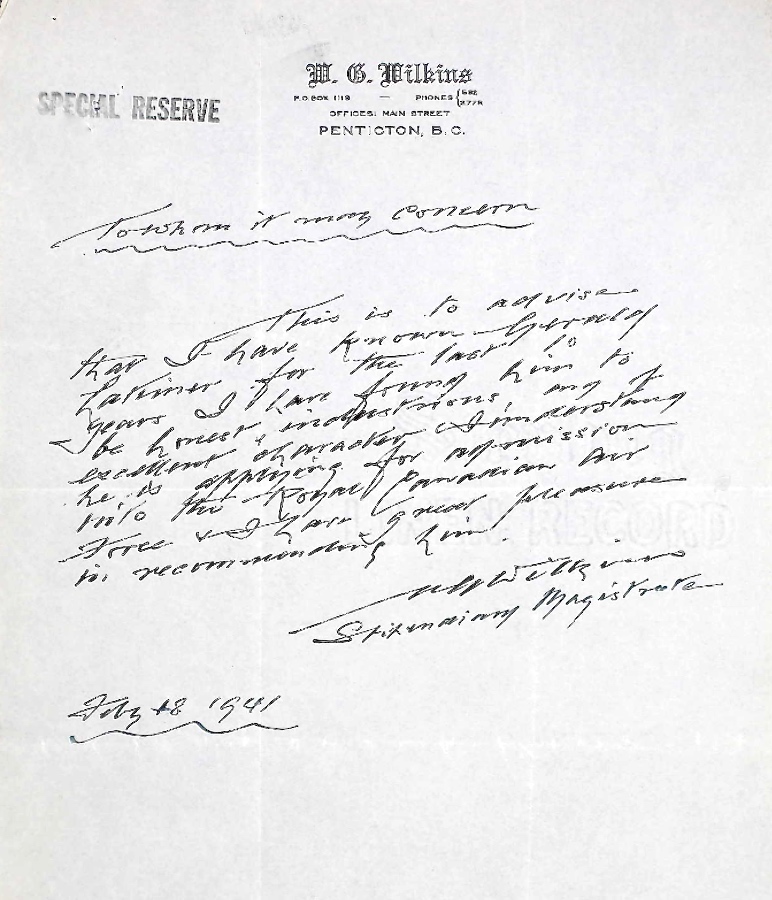 W. G. Wilkins
SPECIAL RESERVE
P.O. BOX 1119 — PHONES
OFFICES: MAIN STREET
PENTICTON, B.C.
To whom it may concern
This is to advise
that I have known Gerald
Latimer for the last 10
years I have found him to
be honest & industrious, and of
excellent character I understand
he is applying for admission
into the Royal Canadian Air
Force & I have great pleasure
in recommending him.
WGWilkins
Stipendiary Magistrate
Feby 18 1941